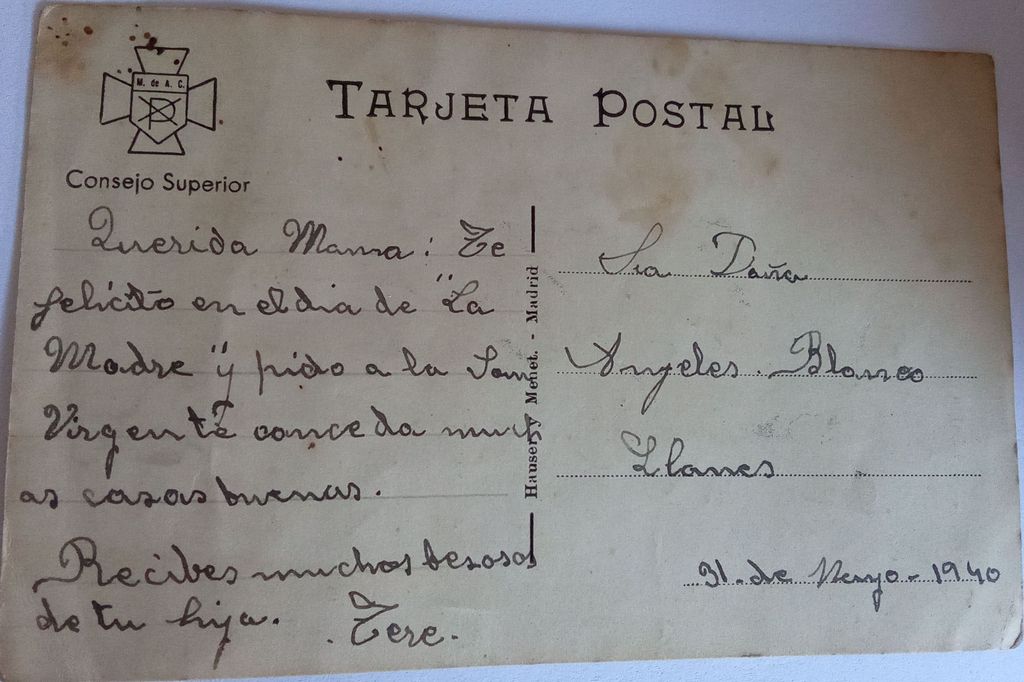 M. de A. C.
Consejo Superior
TARJETA POSTAL
Querida Mama: Te
felicito en el dia de "La
Madre" y pido a la
Virgen te conceda much
as cosas buenas.
Recibes muchos besos
de tu hija.
Tere.
Hauser y Menet. - Madrid
Sra Doña
Angeles Blanco
Llanes
31 de Mayo - 1940